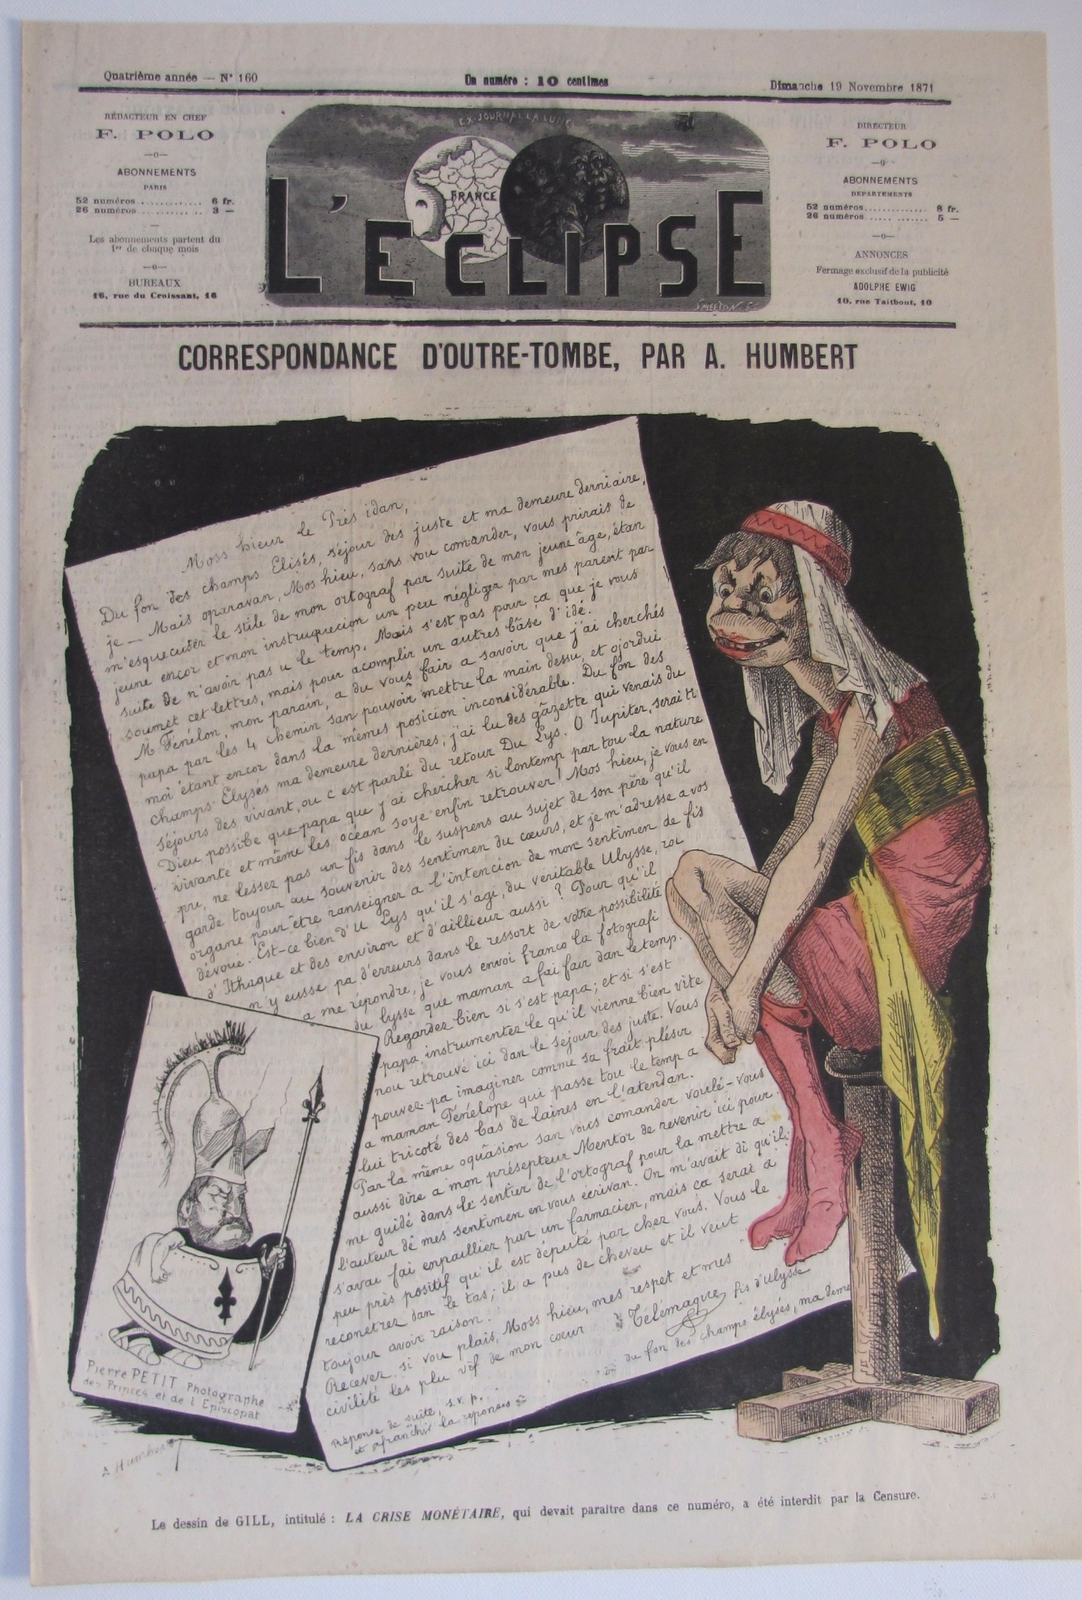 Quatrième année — N° 160
Un numéro : 10 centimes
Dimanche 19 Novembre 1871
RÉDACTEUR EN CHEF
F. POLO
—o—
ABONNEMENTS
PARIS
52 numéros ........... 6 fr.
26 numéros ........... 3 —
—
Les abonnements partent du
1er de chaque mois
—o—
BUREAUX
16, rue du Croissant, 16
EX-JOURNAL LA LUNE
FRANCE
L'ECLIPSE
SMEETON Sc
DIRECTEUR
F. POLO
—o—
ABONNEMENTS
DÉPARTEMENTS
52 numéros............ 8 fr.
26 numéros ........... 5 —
—o—
ANNONCES
Fermage exclusif de la publicité
ADOLPHE EWIG
10, rue Taitbout, 10
CORRESPONDANCE D'OUTRE-TOMBE, PAR A. HUMBERT
Moss hieur le Près idan,
Du fon des champs Elisés, séjour des juste et ma demeure derniaire,
je — Mais oparavan, Mos hieu, sans vou comander, vous prirais de
m'esquecuser le stile de mon ortograf par suite de mon jeune âge, étan
jeune encor et mon instruquecion un peu négliger par mes parent par
suite de n'avoir pas u le temp. Mais s'est pas pour ça que je vous
soumet cet lettres, mais pour acomplir un autres base d'idé.
M. Fénélon, mon parain, a du vous fair a savoir que j'ai cherchés
papa par les 4 chemin san pouvoir mettre la main dessu, et ojordui
moi étant encor dans la mêmes posicion inconsidérable. Du fon des
champs Elyses ma demeure dernières, j'ai lu des gazette qui venais du
séjours des vivant, ou c est parlé du retour Du Lys. O Jupiter, serait
Dieu possible que papa que j'ai chercher si lontemp par tou la nature
vivante et même les océan soye enfin retrouver! Mos hieu, je vous en
pru, ne lessez pas un fis dans le suspens au sujet de son père qu'il
garde toujour au souvenir des sentimen du cœurs, et je m'adresse a vos
organe pour être ranseigner a l'intencion de mon sentimen de fis
dévoue. Est-ce bien d'U Lys qu'il s'agi, du veritable Ulysse, roi
d'Ithaque et des environ et d'aillieur aussi ? Pour qu'il
n'y eusse pa d'erreurs dans le ressort de votre possibilité
a me repondre, je vous envoi franco la fotografi
du lysse que maman a fai fair dan le temp.
Regardez bien si s'est papa; et si s'est
papa instrumentez le qu'il vienne bien vite
nou retrouvé ici dan le sejour des juste. Vous
pouvez pa imaginer comme sa frait plésir
a maman Pénélope qui passe tou le temp a
lui tricoté des bas de laines en l'atendan.
Par la même oquasion san vous comander voulé-vous
aussi dire a mon présepteur Mentor de revenir ici pour
me guidé dans le sentier de l'ortograf pour la mettre a
l'auteur de mes sentimen en vous écrivan. On m'avait di qu'il
s'avai fai enpaillier par un farmacien, mais ca serai a
peu près positif qu'il est député par chez vous. Vous le
reconetrez dan le tas; il a pus de cheveu et il veut
toujour avoir raison.
Recever si vou plais, Moss hieu, mes respet et mes
civilité les plu vif de mon cœur
Télémaque fis d'ulysse
du fon des champs élysés, ma deme
Réponse de suite, s.v.p.
et afranchir la reponses
Pierre PETIT Photographe
des Princes et de l'Episcopat
A Humbert
Le dessin de GILL, intitulé : LA CRISE MONÉTAIRE, qui devait paraître dans ce numéro, a été interdit par la Censure.